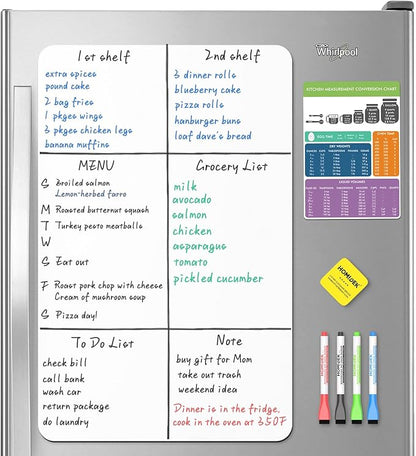 1st shelf
extra spices
pound cake
2 bag fries
1 pkges wings
3 pkges chicken legs
banana muffins
2nd shelf
3 dinner rolls
blueberry cake
pizza rolls
hamburger buns
loaf dave's bread
Whirlpool
KITCHEN MEASUREMENT CONVERSION CHART
EGG TIME
OVEN TEMP
DRY WEIGHTS
LIQUID VOLUMES
MENU
S Broiled salmon
Lemon-herbed farro
M Roasted butternut squash
T Turkey pesto meatballs
W
S Eat out
F Roast pork chop with cheese
Cream of mushroom soup
S Pizza day!
Grocery List
milk
avocado
salmon
chicken
asparagus
tomato
pickled cucumber
HOMIDEK
To Do List
check bill
call bank
wash car
return package
do laundry
Note
buy gift for Mom
take out trash
weekend idea
Dinner is in the fridge,
cook in the oven at 350F